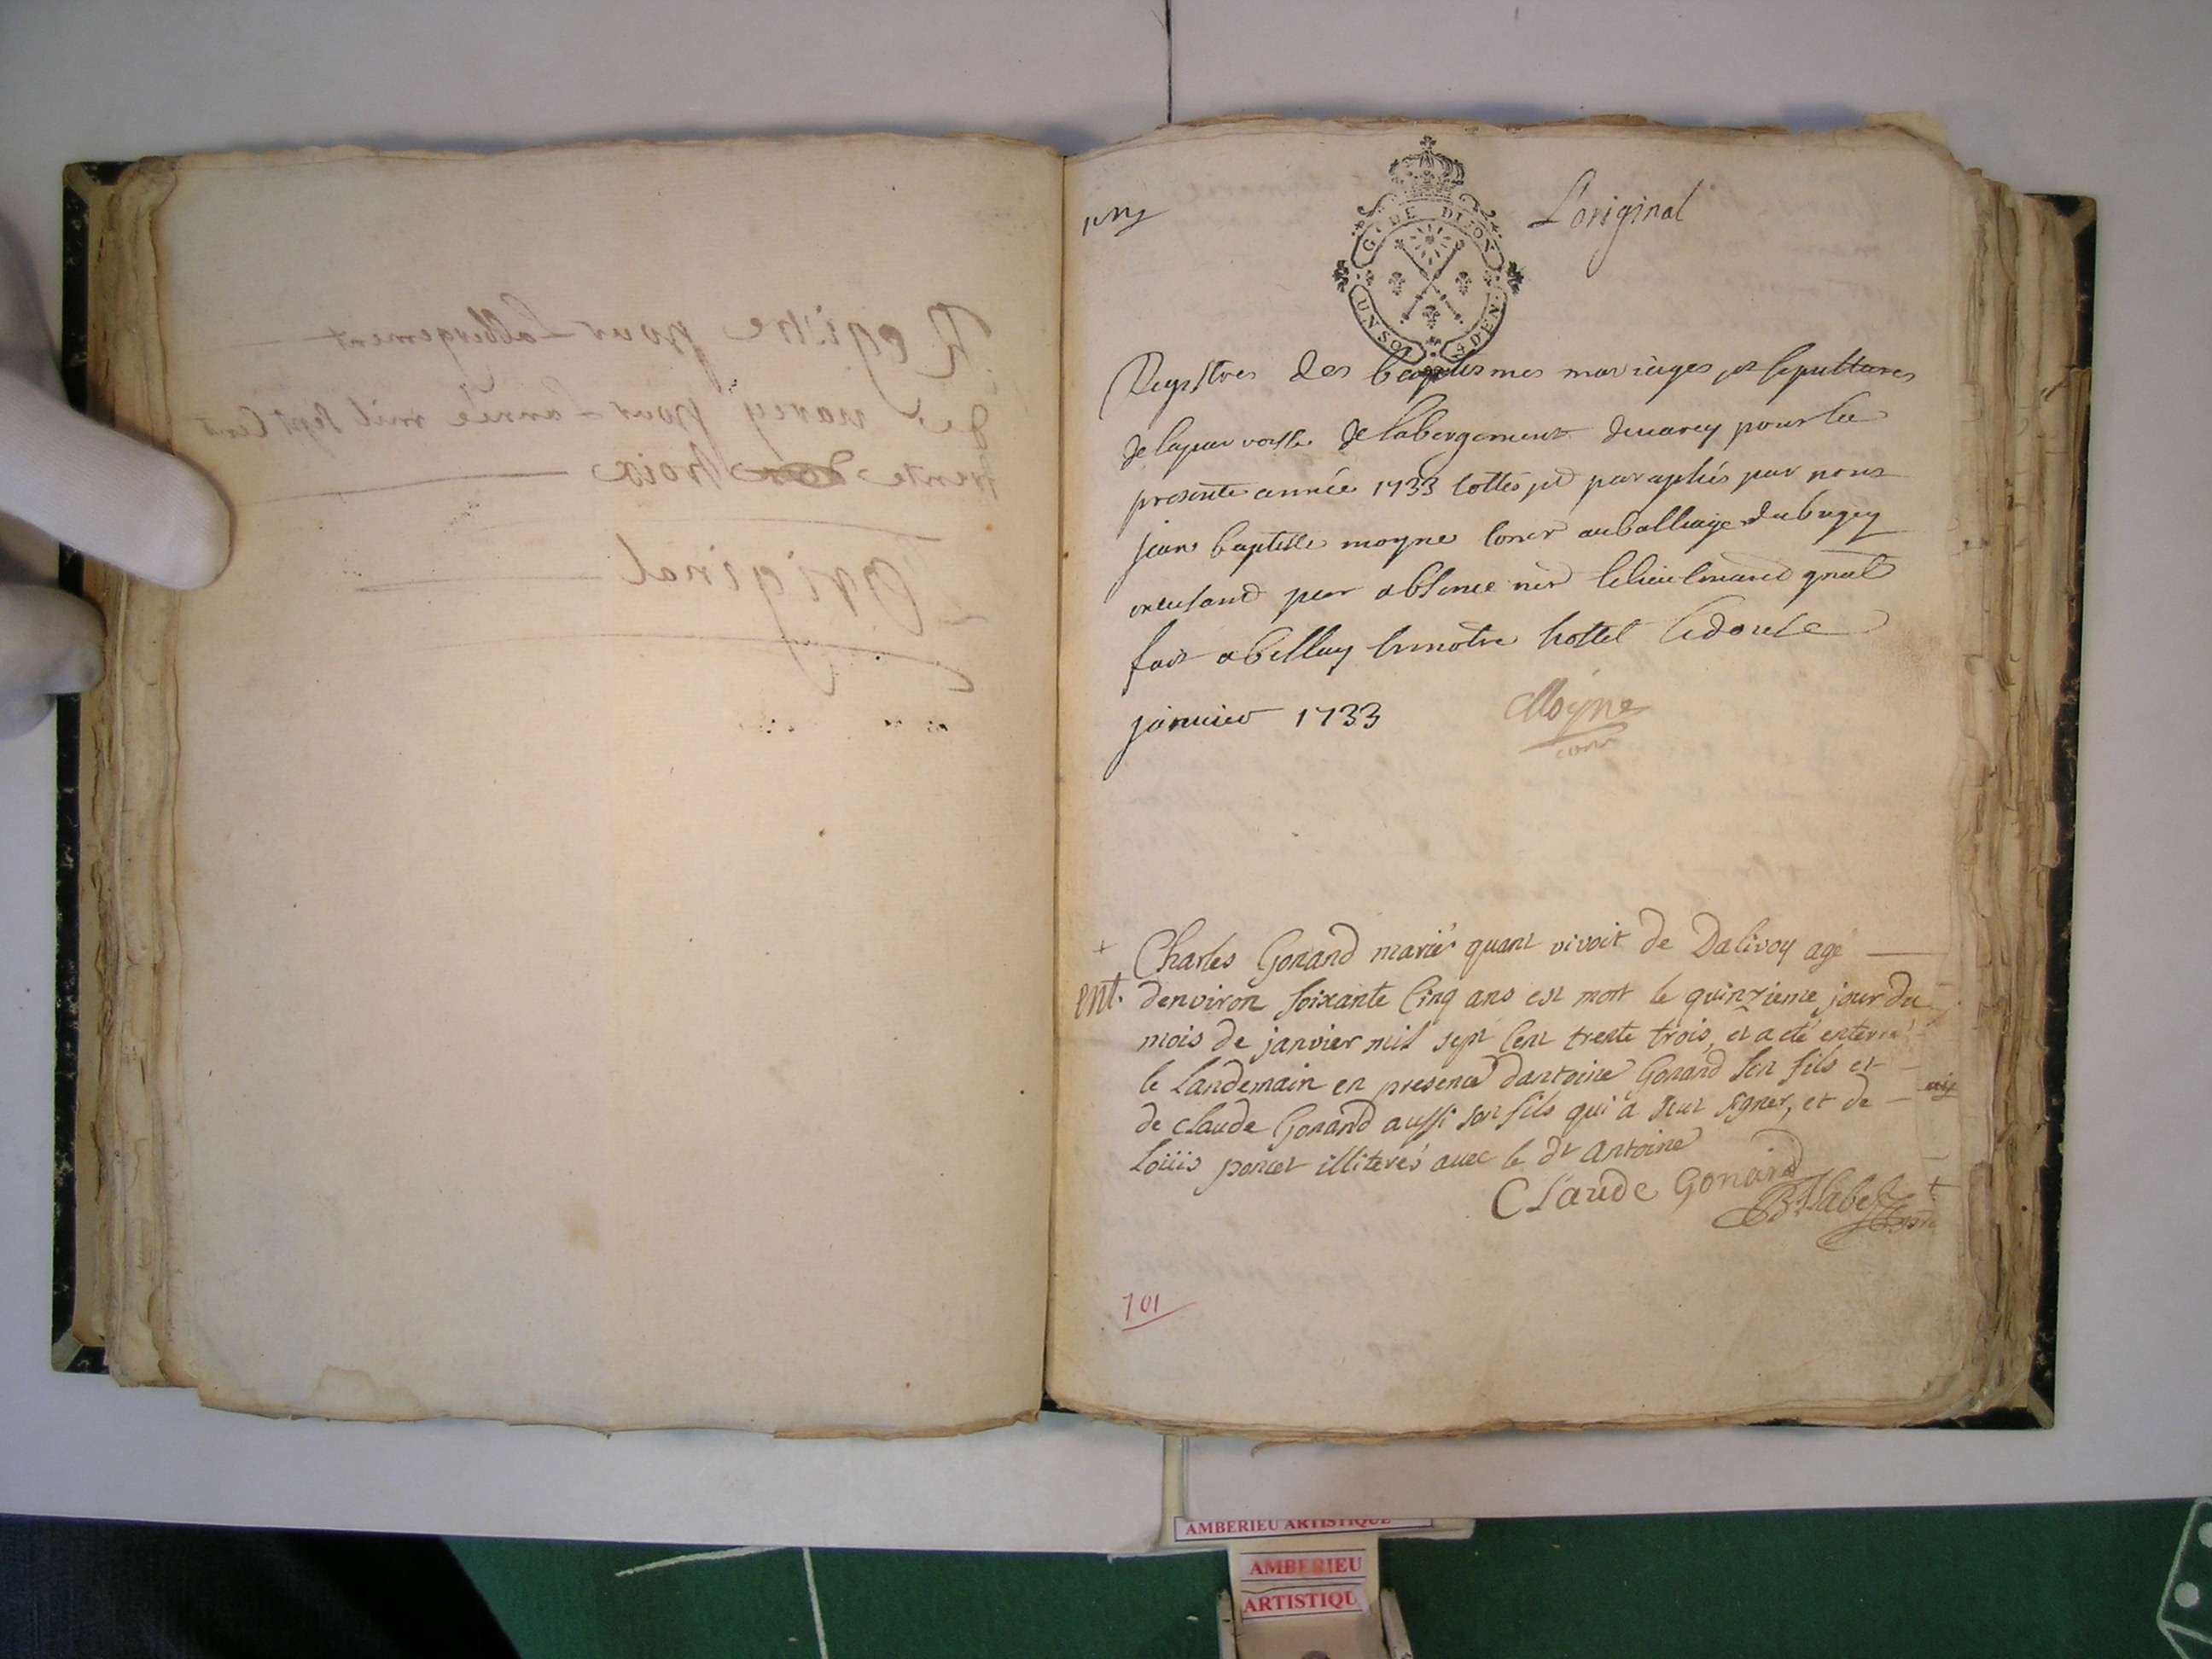 Registre pour Labbergement
de varey pour L'année mil sept Cent
trente troix
L'original
L'original
G. DE DIJON
UN SOL
4 DEN.
Registres des baptismes mariages et sepultures
de la parroisse de labergement de varey pour la
presente année 1733 cottés et paraphés par nous
jean baptiste moyne conser au balliage du bugey
par absence lieutenand gnal
fait a bellay en notre hottel le douse
janvier 1733
Moyne
conser
+ Charles Gonard marié quant vivoit de Dalivoy agé
ent. denviron soixante cinq ans est mort le quinzieme jour du
mois de janvier mil sept cent trente trois, et a eté enterré
le landemain en presence dantoine Gonard son fils et
de claude Gonard aussi son fils qui a seut signer, et de
Loüis poncet illiterés avec le dt antoine
CLaude Gonard
101
AMBERIEU ARTISTIQUE
AMBERIEU
ARTISTIQU